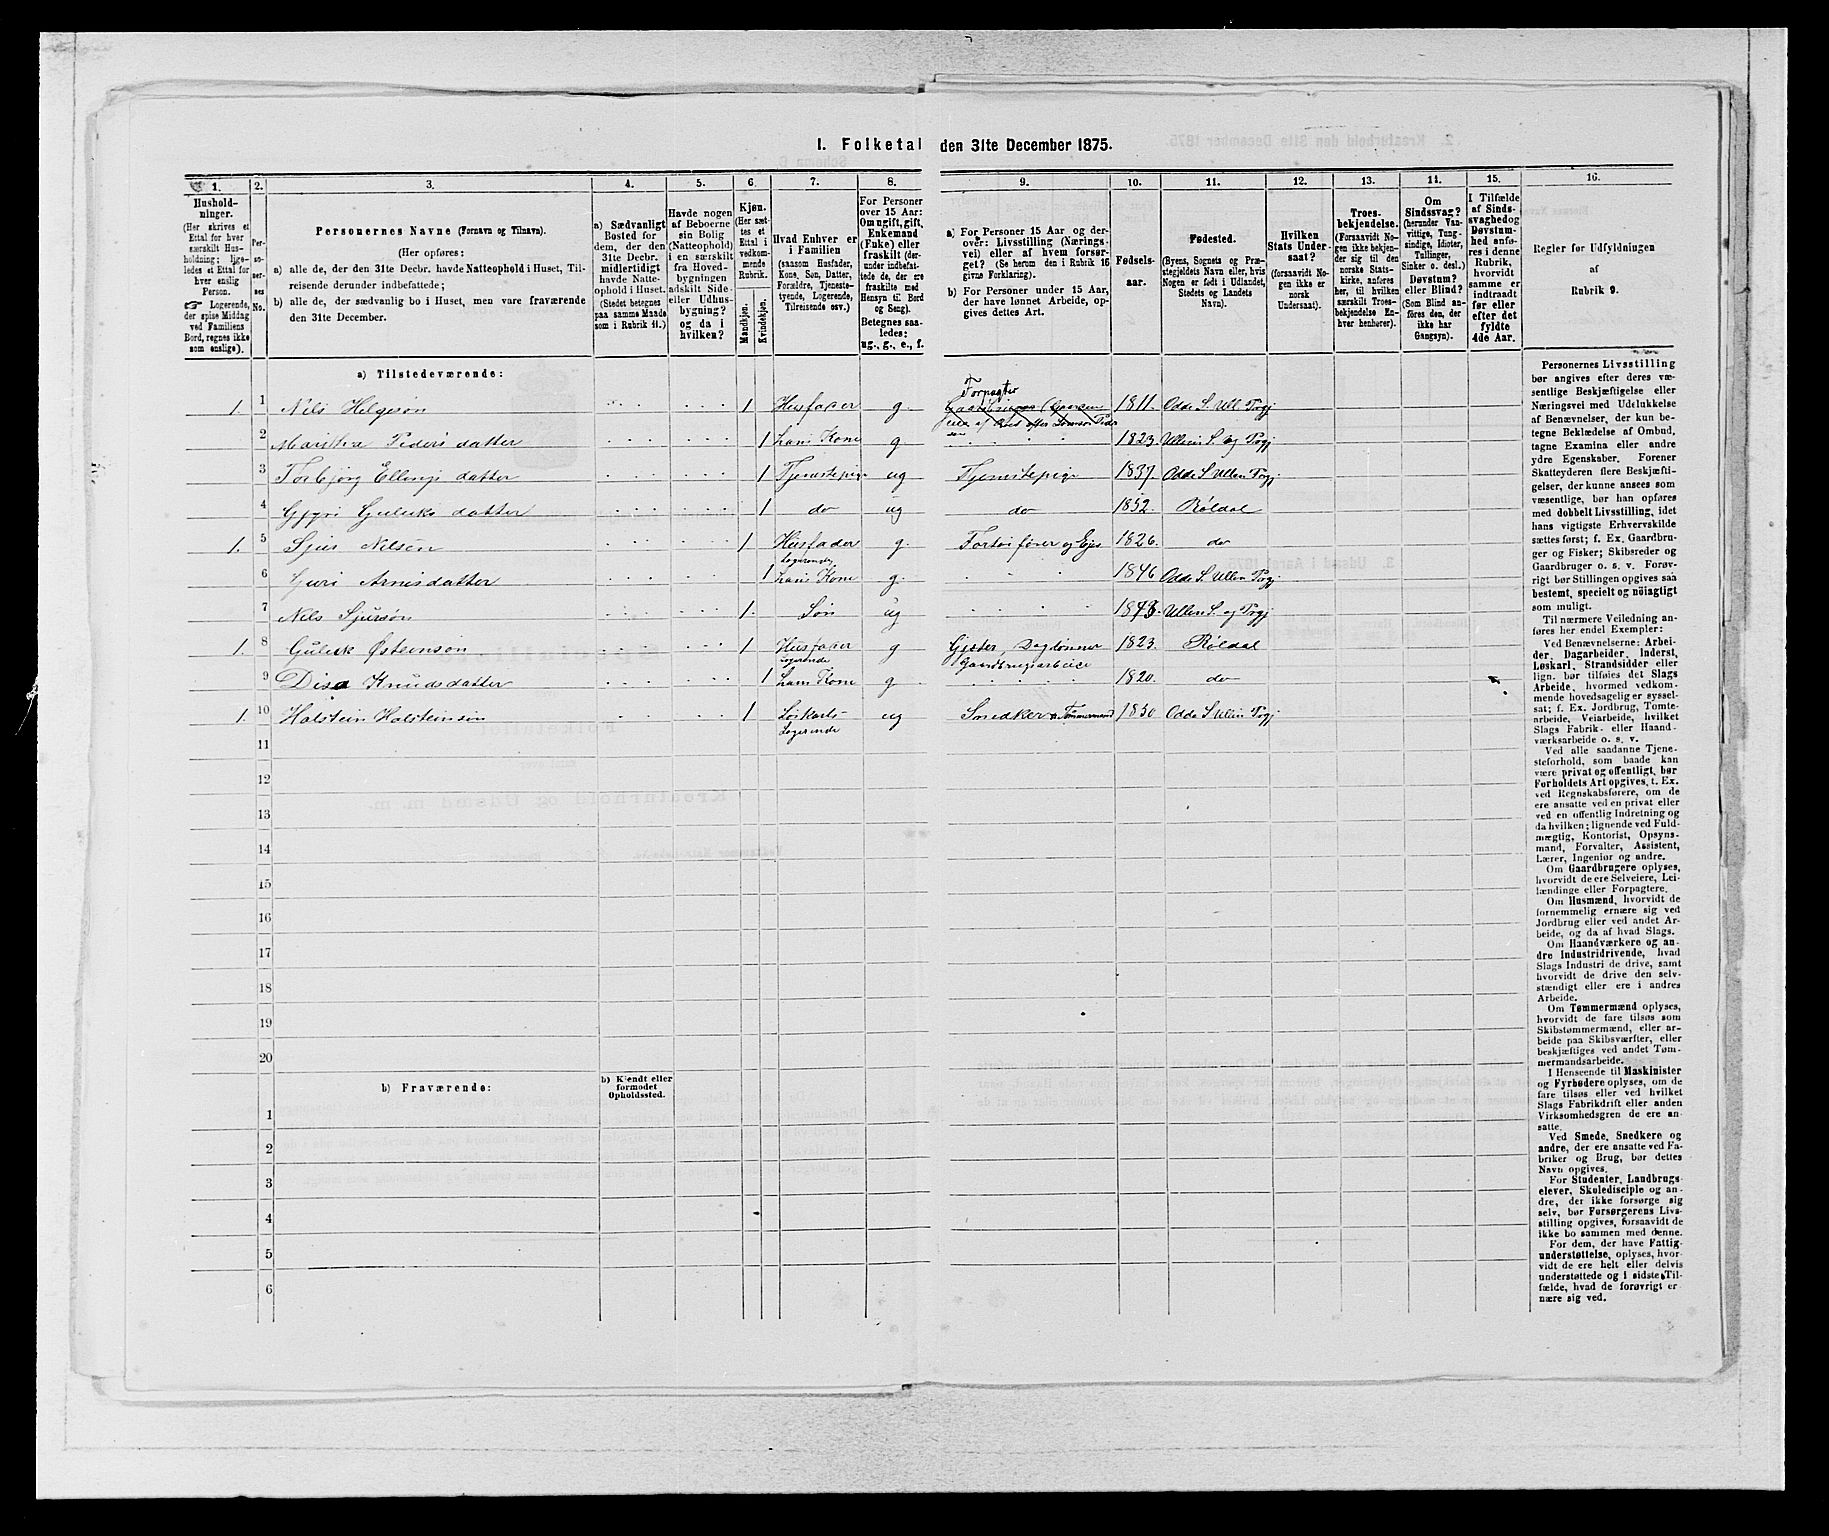 I. Folketal den 31te December 1875.
1.
Husholdninger.
(Her skrives et
Ettal for hver
særskilt Husholdning;
ligeledes et Ettal for
hver enslig
Person.
☞ Logerende,
der spise Middag
ved Familiens
Bord, regnes ikke
som enslige).
2.
Personernes
No.
3.
Personernes Navne (Fornavn og Tilnavn).
(Her opføres:
a) alle de, der den 31te Decbr. havde Natteophold i Huset, Tilreisende derunder indbefattede;
b) alle de, der sædvanlig bo i Huset, men vare fraværende
den 31te December.
4.
a) Sædvanligt
Bosted for
dem, der den
31te Decbr.
midlertidigt
havde Natteophold
i Huset.
(Stedet betegnes
paa samme Maade
som i Rubrik 11.)
5.
Havde nogen
af Beboerne
sin Bolig
(Natteophold)
i en særskilt
fra Hovedbygningen
adskilt Side- eller
Udhusbygning?
og da i
hvilken?
6.
Kjøn.
(Her sættes et
Ettal i
vedkommende
Rubrik.
Mandkjøn.
Kvindekjøn.
7.
Hvad Enhver er
i Familien
(saasom Husfader,
Kone, Søn, Datter,
Forældre, Tjenestetyende,
Logerende,
Tilreisende osv.)
8.
For Personer
over 15 Aar:
Om ugift, gift,
Enkemand
(Fuke) eller
fraskilt (derunder
indbefattede de, der ere
fraskilte med
Hensyn til Bord
og Seng).
Betegnes saaledes:
ug., g., e., f.
9.
a) For Personer 15 Aar og derover:
Livsstilling (Næringsvei)
eller af hvem forsørget?
(Se herom den i Rubrik 16
givns Forklaring).
b) For Personer under 15 Aar,
der have lønnet Arbeide, opgives
dettes Art.
10.
Fødselsaar.
11.
Fødested.
(Byens, Sognets og Præstegjeldets
Navn eller, hvis
Nogen er født i Udlandet,
Stedets og Landets
Navn).
12.
Hvilken
Stats Undersaat?
(forsaavidt Nogen
ikke er
norsk
Undersaat).
13.
Troesbekjendelse.
(Forsaavidt Nogen
ikke bekjender
sig til den
norske Statskirke,
anføres
her, til hvilken
særskilt Troesbekjendelse
Enhver
henhører).
14.
Om
Sindssvag?
(herunder Vanvittige,
Tungsindige,
Idioter,
Tullinger,
Sinker o. desl.)
Døvstum?
eller Blind?
(Som Blind anføres
den, der
ikke har
Gangsyn).
15.
I Tilfælde
af Sindssvaghed og
Døvstumhed
anføres
i denne
Rubrik,
hvorvidt
samme er
indtraadt
før eller
efter det
fyldte
4de Aar.
16.
Regler for Udfyldningen
af
Rubrik 9.
a) Tilstedeværende:
1. 1 Nils Helgesøn 1 Husfader g. Forpagter 1811. Odde S. Ull. Prgj
2 Martha Peders datter 1 hans Kone g 1823. Ullen S. og Prgj
3 Torbjørg Ellings datter 1 Tjenstepige ug Tjenstepige 1837. Odde S Ullen Prgj
4 Gjyri Guleiks datter 1 do ug do 1852. Røldal
1. 5 Sjur Nilsen 1 Husfader Logerende g. 1826. do
6 Guri Arnesdatter 1 hans Kone g. 1846 Odde S. Ullen Prgj
7 Nels Sjursøn 1. Søn ug Ullen S. og Prgj
1. 8 Guleik Østeinsøn 1 Husfader Logerende g Daglønner Gaardbrugsarbeide 1823. Røldal
9 Disa Knudsdatter 1 hans Kone g. 1820. do
1. 10 Halstein Halsteinsøn 1 Løskarl Logerende ug Snedker o Tømmermand 1850 Odde S Ullen Prgj
11
12
13
14
15
16
17
18
19
20
b) Fraværende:
b) Kjendt eller
formodet
Opholdssted.
1
2
3
4
5
6
Personernes Livsstilling
bør angives efter deres væsentlige
Beskjæftigelse eller
Næringsvei med Udelukkelse
af Benævnelser, der kun betegne
Beklædelse af Ombud,
tagne Examina eller andre
ydre Egenskaber. Forener
Skatteyderen flere Beskjæftigelser,
der kunne ansees som
væsentlige, bør han opføres
med dobbelt Livsstilling, idet
hans vigtigste Erhvervskilde
sættes først; f. Ex. Gaardbruger
og Fisker; Skibsreder og
Gaardbruger o. s. v. Forøvrigt
bør Stillingen opgives saa
bestemt, specielt og nöiagtigt
som muligt.
Til nærmere Veiledning anføres
her endel Exempler:
Ved Benævnelserne: Arbeider,
Dagarbeider, Inderst,
Løskarl, Strandsidder eller
lign. bør tilføies det Slags
Arbeide, hvormed vedkommende
hovedsagelig er sysselsat;
f. Ex. Jordbrug, Tomtearbeide,
Veiarbeide, hvilket
Slags Fabrik- eller Haandværksarbeide
o. s. v.
Ved alle saadanne Tjenesteforhold,
som baade kan
være privat og offentligt, bør
Forholdets Art opgives, t. Ex.
ved Regnskabsførere, om de
ere ansatte ved en privat eller
ved en offentlig Indretning og
da hvilken; lignende ved Fuldmægtig,
Kontorist, Opsynsmand,
Forvalter, Assistent,
Lærer, Ingeniør og andre.
Om Gaardbrugere oplyses,
hvorvidt de ere Selveiere, Leilændinge
eller Forpagtere.
Om Husmænd, hvorvidt de
fornemmelig ernære sig ved
Jordbrug eller ved andet Arbeide,
og da af hvad Slags.
Om Haandværkere og andre
Industridrivende, hvad
Slags Industri de drive, samt
hvorvidt de drive den selvstændigt
eller ere i andres
Arbeide.
Om Tømmermænd oplyses,
hvorvidt de fare tilsøs som
Skibstømmermænd, eller arbeide
paa Skibsværfter, eller
beskjæftiges ved andet Tømmermandsarbeide.
I Henseende til Maskinister
og Fyrbødere oplyses, om de
fare tilsøs eller ved hvilket
Slags Fabrikdrift eller anden
Virksomhedsgren de ere ansatte.
Ved Smede, Snedkere og
andre, der ere ansatte ved Fabriker
og Brug, bør dettes
Navn opgives.
For Studenter, Landbrugselever,
Skoledisciple og andre,
der ikke forsørge sig
selv, bør Forsørgerens Livsstilling
opgives, forsaavidt de
ikke bo sammen med denne.
For dem, der have Fattigunderstøttelse,
oplyses, hvorvidt
de ere helt eller delvis
understøttede og i sidste Tilfælde,
hvad de forøvrigt ernære
sig ved.